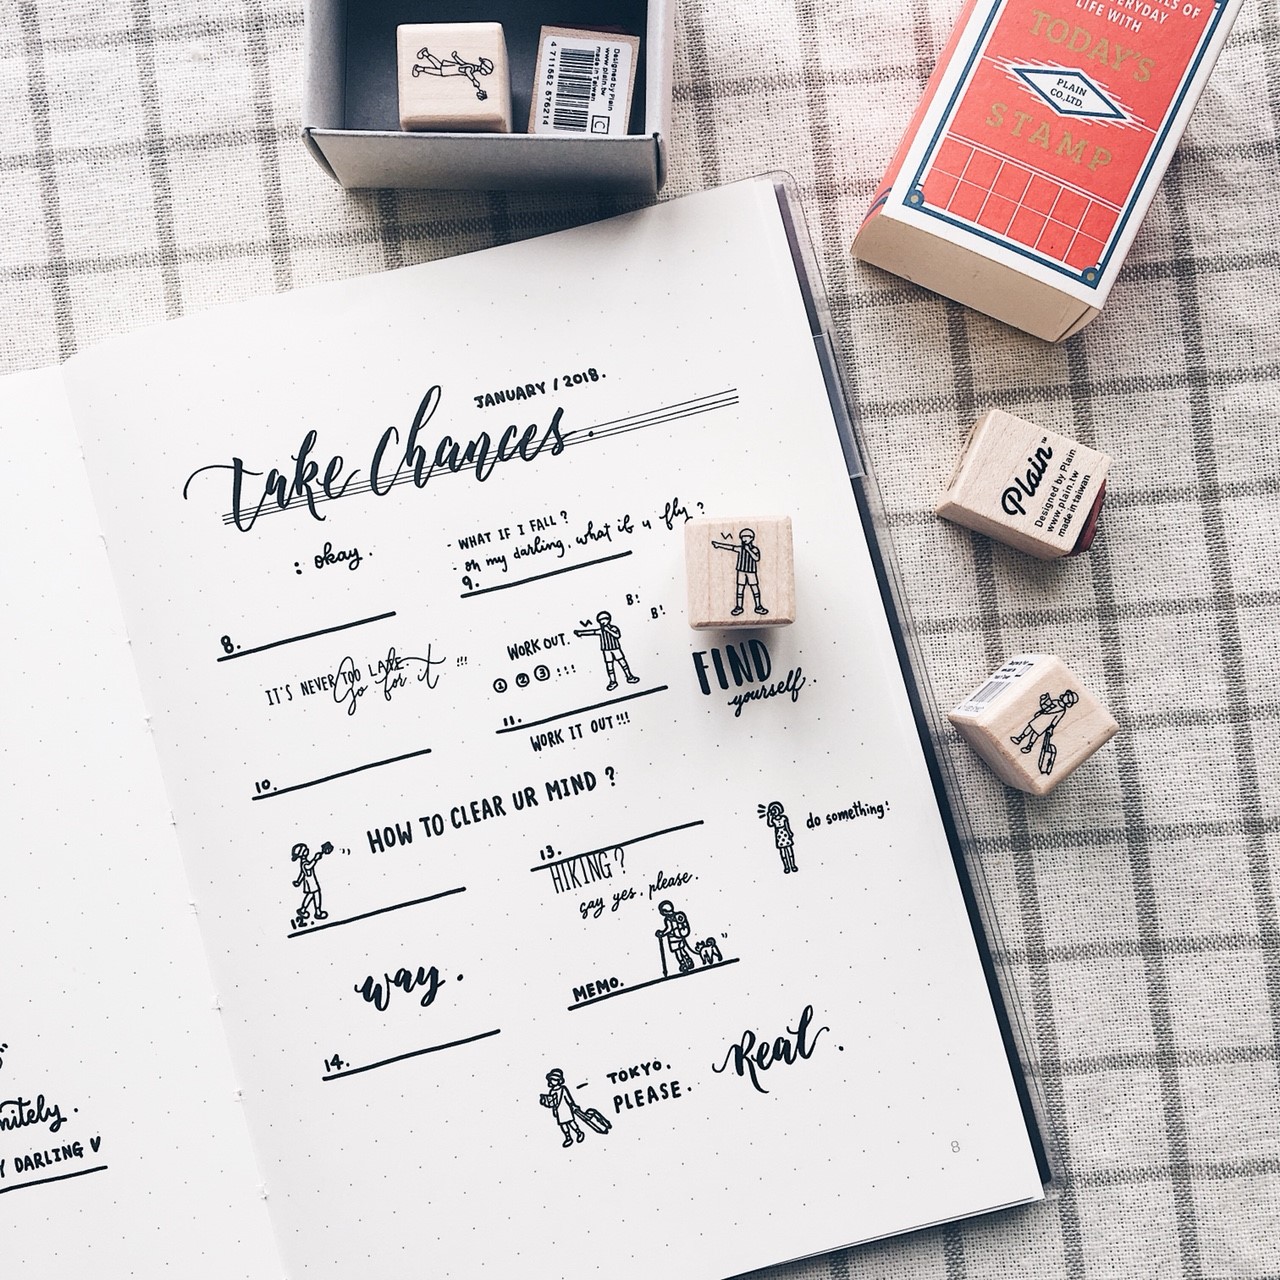 Designed by Plain
www.plain.tw
made in Taiwan
4 711662 676214
LS OF
ERYDAY
LIFE WITH
TODAY'S
PLAIN
CO.,LTD.
STAMP
Plain™
Designed by Plain
www.plain.tw
made in taiwan
JANUARY / 2018.
Take Chances.
: okay.
- WHAT IF I FALL?
- oh my darling, what if u fly?
8.
9.
IT'S NEVER TOO LATE.
Go for it !!!
WORK OUT.
B! B!
① ② ③ !!!
FIND
yourself..
10.
11.
WORK IT OUT!!!
HOW TO CLEAR UR MIND ?
12.
13.
HIKING?
say yes, please.
do something!
way.
MEMO.
14.
TOKYO.
PLEASE.
Real.
8
nitely.
Y DARLING ♥